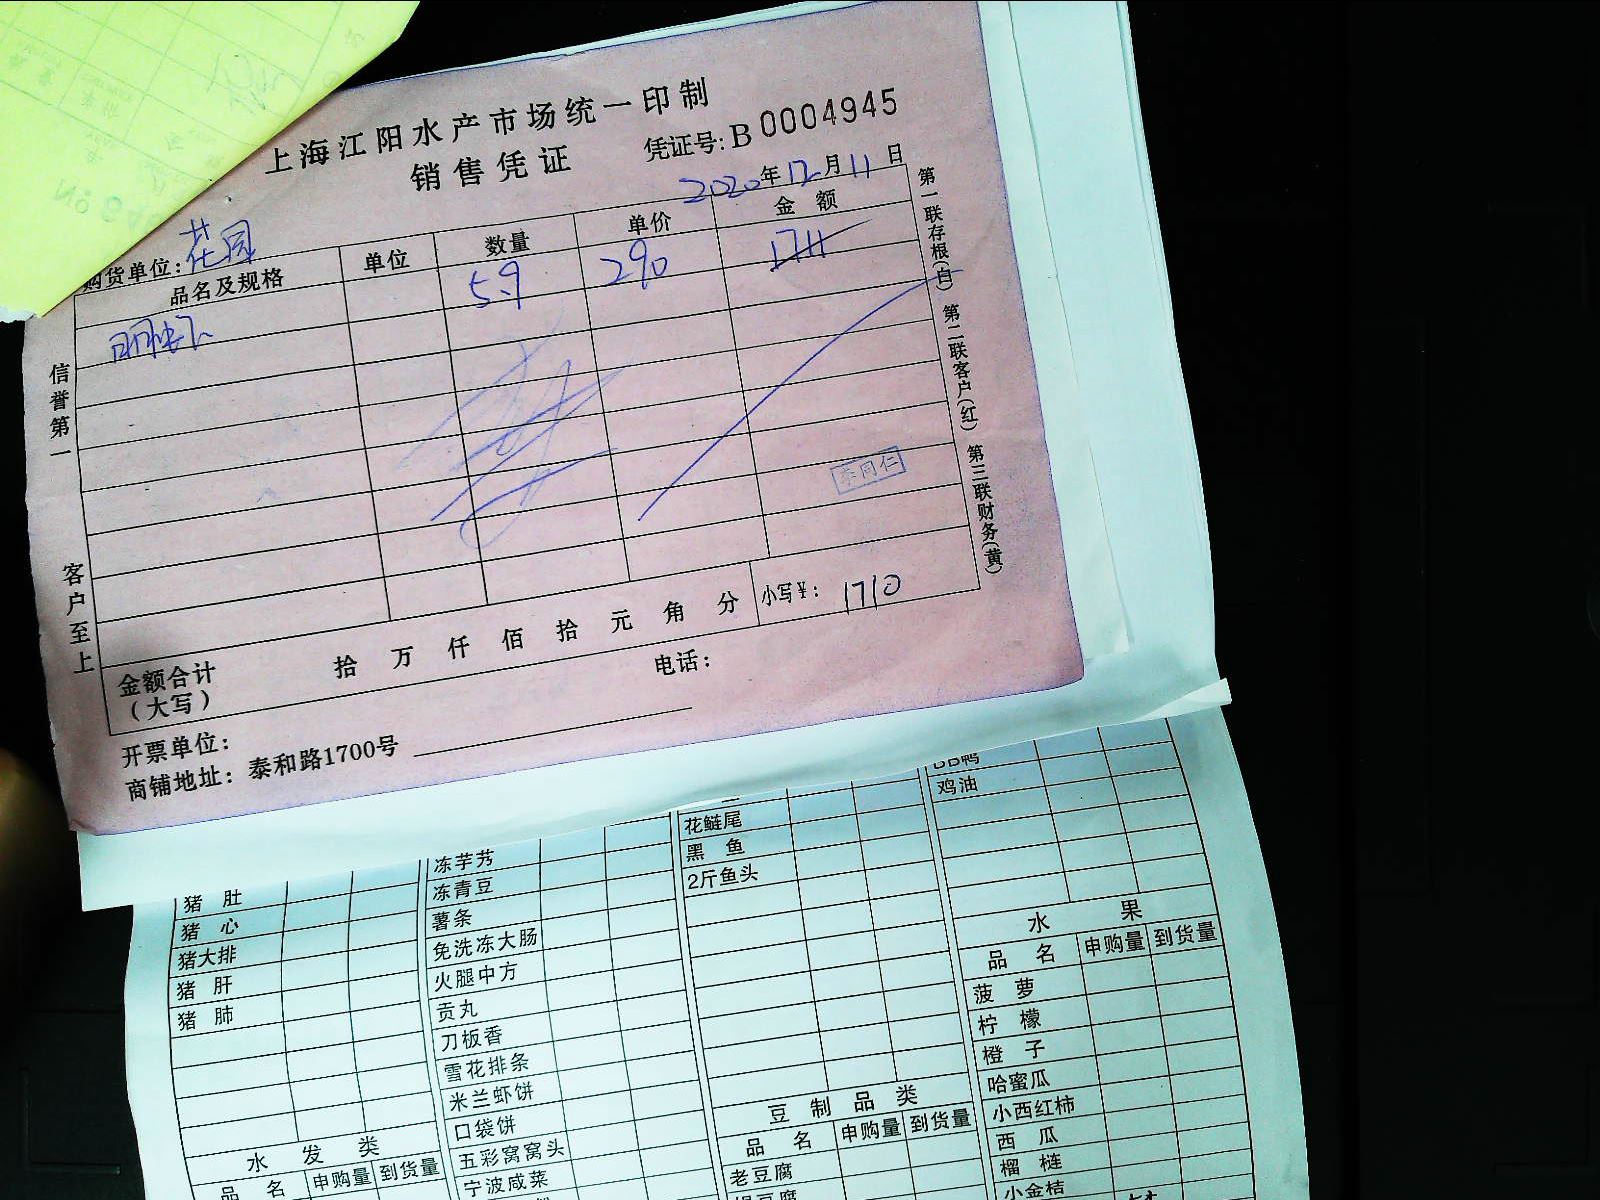 上海江阳水产市场统一印制
销售凭证
凭证号:B 0004945
2020年12月11日
购货单位:花园
品名及规格 单位 数量 单价 金额
5.9 290 1711
李同仁
金额合计(大写) 拾 万 仟 佰 拾 元 角 分 小写¥: 1710
开票单位: 电话:
商铺地址: 泰和路1700号
信誉第一 客户至上
第一联存根(白) 第二联客户(红) 第三联财务(黄)
猪肚
猪心
猪大排
猪肝
猪肺
水发类
品名 申购量 到货量
冻芋艿
冻青豆
薯条
免洗冻大肠
火腿中方
贡丸
刀板香
雪花排条
米兰虾饼
口袋饼
五彩窝窝头
宁波咸菜
花鲢尾
黑鱼
2斤鱼头
豆制品类
品名 申购量 到货量
老豆腐
鸡油
水果
品名 申购量 到货量
菠萝
柠檬
橙子
哈蜜瓜
小西红柿
西瓜
榴梿
小金桔